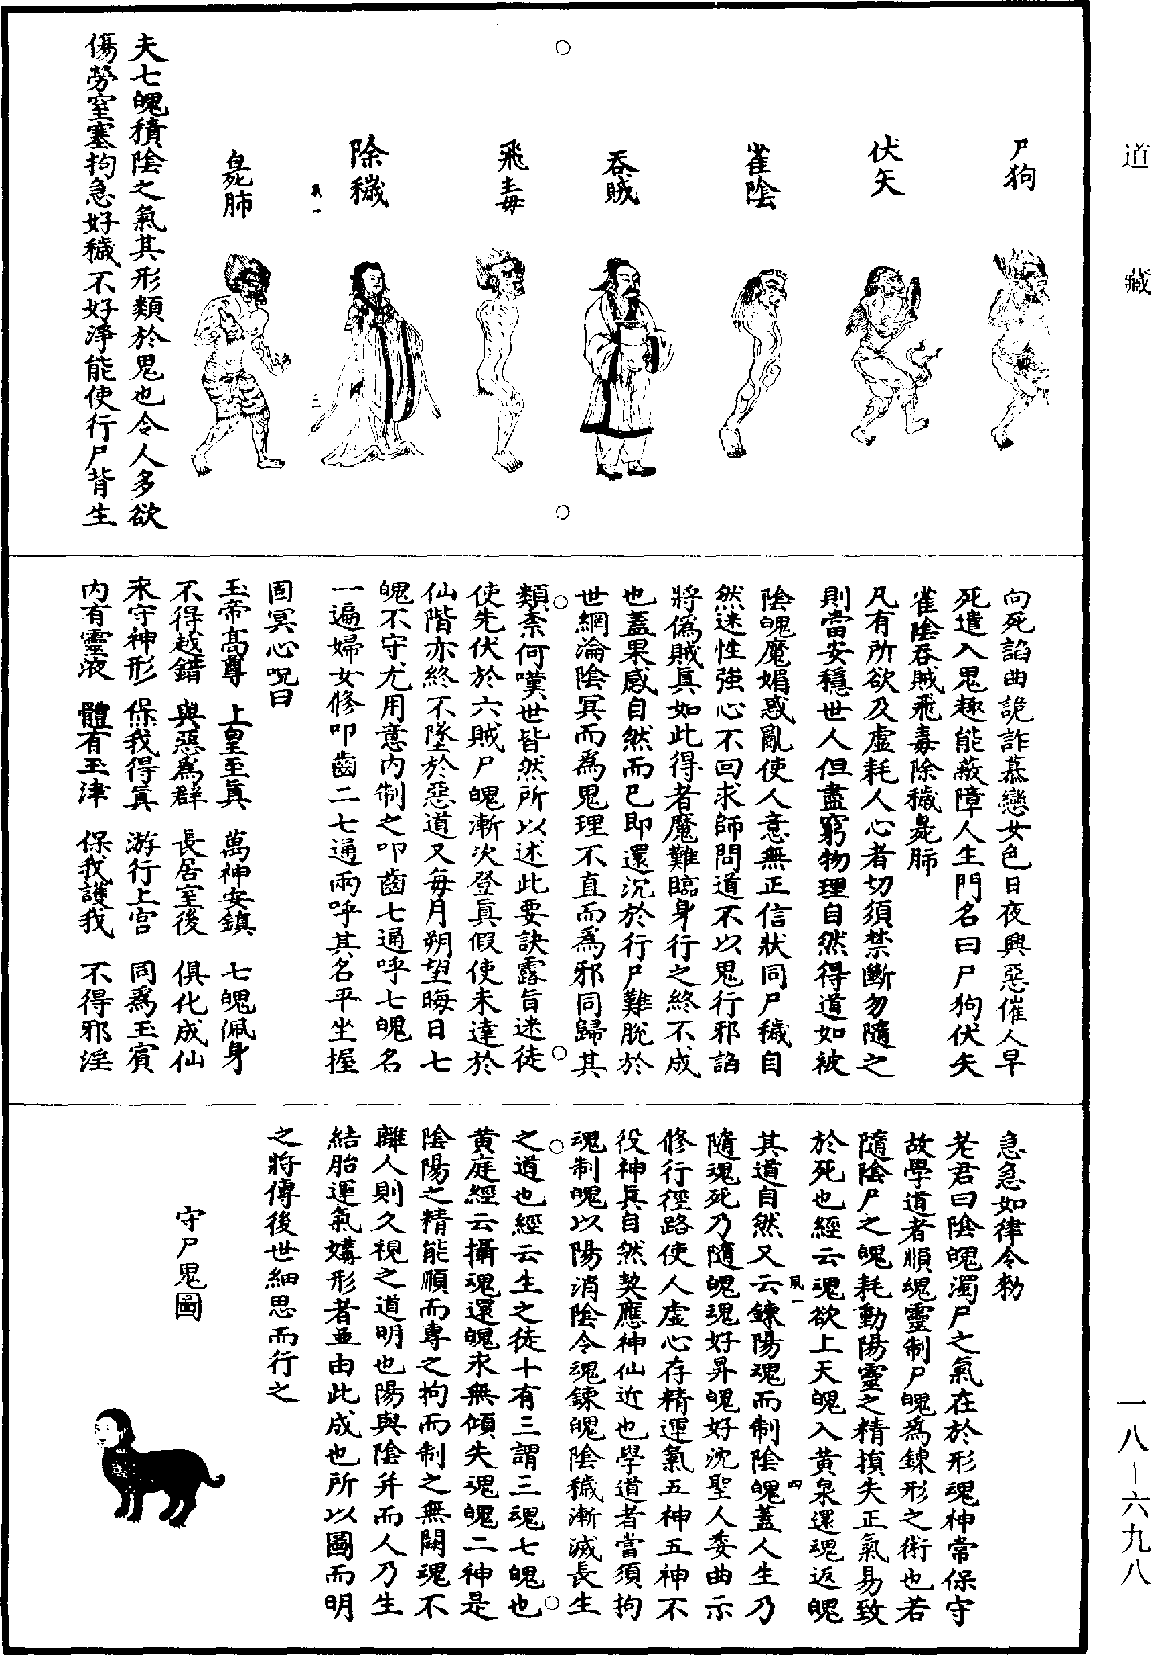 道藏
尸狗
伏矢
雀陰
吞賊
飛毒
除穢
臰肺
夫七魄積陰之氣其形類於鬼也令人多欲
傷勞窒塞拘急好穢不好淨能使行尸背生
向死諂曲詭詐慕戀女色日夜興惡催人早
死遣入鬼趣能蔽障人生門名曰尸狗伏矢
雀陰吞賊飛毒除穢臰肺
凡有所欲及虛耗人心者切須禁斷勿隨之
則當安穩世人但盡窮物理自然得道如被
陰魄魔媚惑亂使人意無正信狀同尸穢自
然迷性強心不回求師問道不以鬼行邪諂
將偽賊真如此得者魔難臨身行之終不成
也蓋果感自然而已即還沉於行尸難脫於
世網淪陰冥而為鬼理不直而為邪同歸其
類柰何嘆世皆然所以述此要訣露旨迷徒
使先伏於六賊尸魄漸次登真假使未達於
仙階亦終不墜於惡道又每月朔望晦日七
魄不守尤用意內制之叩齒七通呼七魄名
一遍婦女修叩齒二七通兩呼其名平坐握
固冥心呪曰
玉帝高尊 上皇至真 萬神安鎮 七魄佩身
不得越錯 與惡為群 長居室後 俱化成仙
來守神形 保我得真 游行上宫 同為玉賓
內有靈液 體有玉津 保我護我 不得邪淫
急急如律令勑
老君曰陰魄濁尸之氣在於形魂神常保守
故學道者順魂靈制尸魄為鍊形之術也若
隨陰尸之魄耗動陽靈之精損失正氣易致
於死也經云魂欲上天魄入黃泉還魂返魄
其道自然又云鍊陽魂而制陰魄蓋人生乃
隨魂死乃隨魄魂好昇魄好沈聖人委曲示
修行徑路使人虛心存精運氣五神五神不
役神真自然契應神仙近也學道者當須拘
魂制魄以陽消陰令魂鍊魄陰穢漸滅長生
之道也經云生之徒十有三謂三魂七魄也
黃庭經云攝魂還魄永無傾失魂魄二神是
陰陽之精能順而專之拘而制之無闕魂不
離人則久視之道明也陽與陰并而人乃生
結胎運氣媾形者並由此成也所以圖而明
之將傳後世細思而行之
守尸鬼圖
一八－六九八